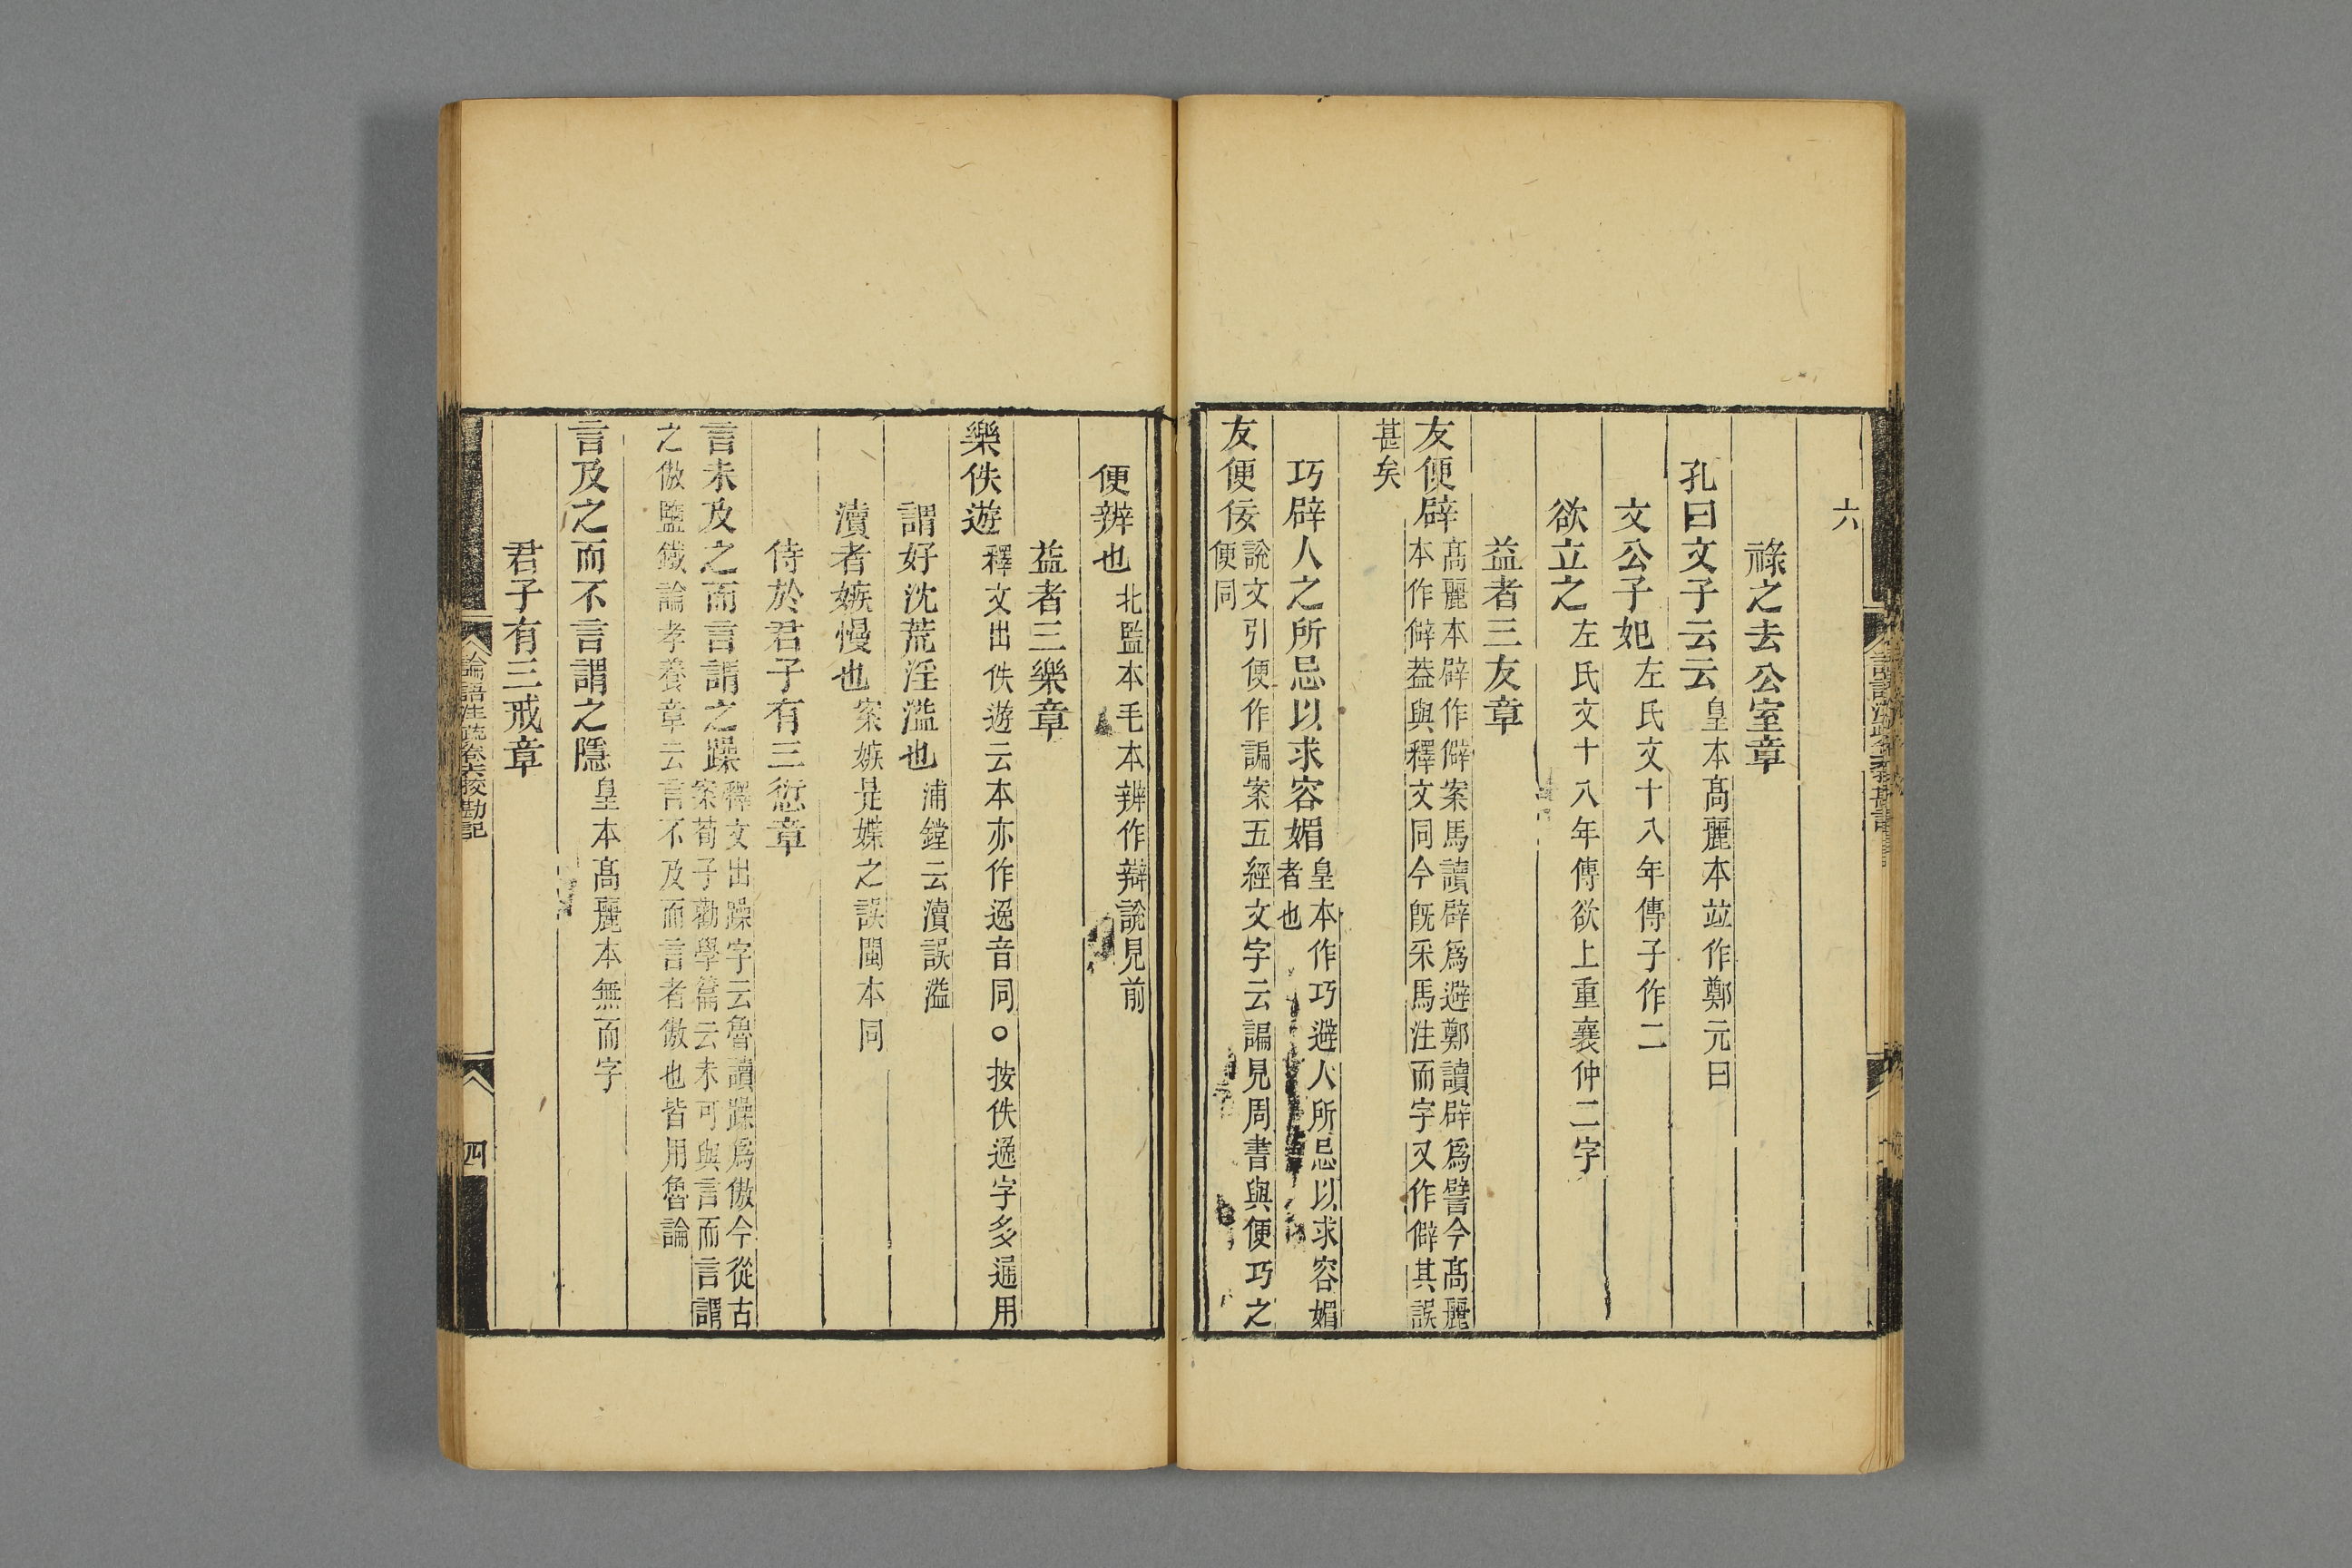 六
祿之去公室章
孔曰文子云云皇本髙麗本竝作鄭元曰
文公子妃左氏文十八年傳子作二
欲立之左氏文十八年傳欲上重襄仲二字
益者三友章
友便辟髙麗本辟作僻案馬讀辟爲避鄭讀辟爲譬今髙麗
本作僻葢與釋文同今旣采馬注而字又作僻其誤
甚矣
巧辟人之所忌以求容媚皇本作巧避人所忌以求容媚
者也
友便佞說文引便作諞案五經文字云諞見周書與便巧之
便同
便辨也北監本毛本辨作辯說見前
益者三樂章
樂佚遊釋文出佚遊云本亦作逸音同○按佚逸字多通用
謂好沈荒淫溢也浦鏜云瀆誤溢
瀆者嫉慢也案嫉是媟之誤閩本同
侍於君子有三愆章
言未及之而言謂之躁釋文出躁字云魯讀躁爲傲今從古
案荀子勸學篇云未可與言而言謂
之傲鹽鐵論孝養章云言不及而言者傲也皆用魯論
言及之而不言謂之隱皇本髙麗本無而字
君子有三戒章
論語注疏卷十六挍勘記
四